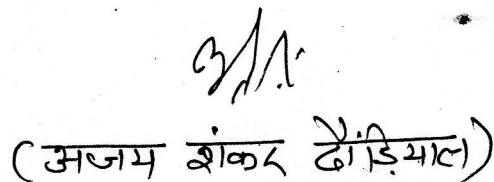 (अजय शंकर ढौंडियाल)